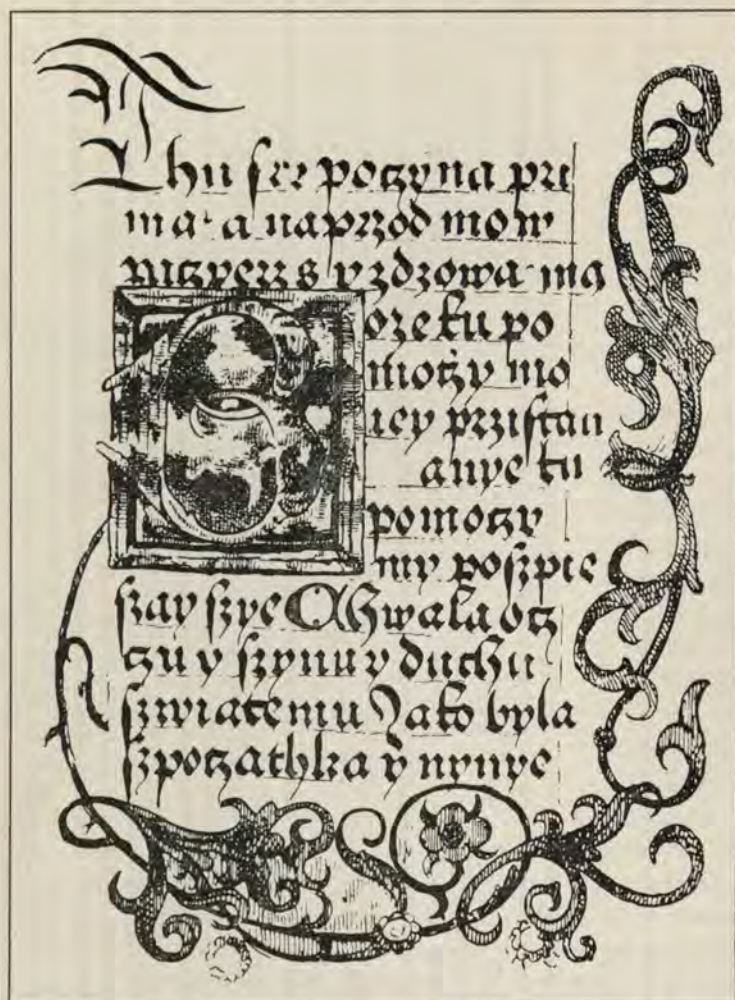 Thu sze poczyna pri
ma· a naprzod mow
piczerz s y zdzowa ma
oze ku po
moczy mo
iey przistan
a nye ku
pomoczy
my poszpie
szay szye Chwala ocz
czu y szynu y duchu
szwiatemu Jako byla
szpoczathka y nynye